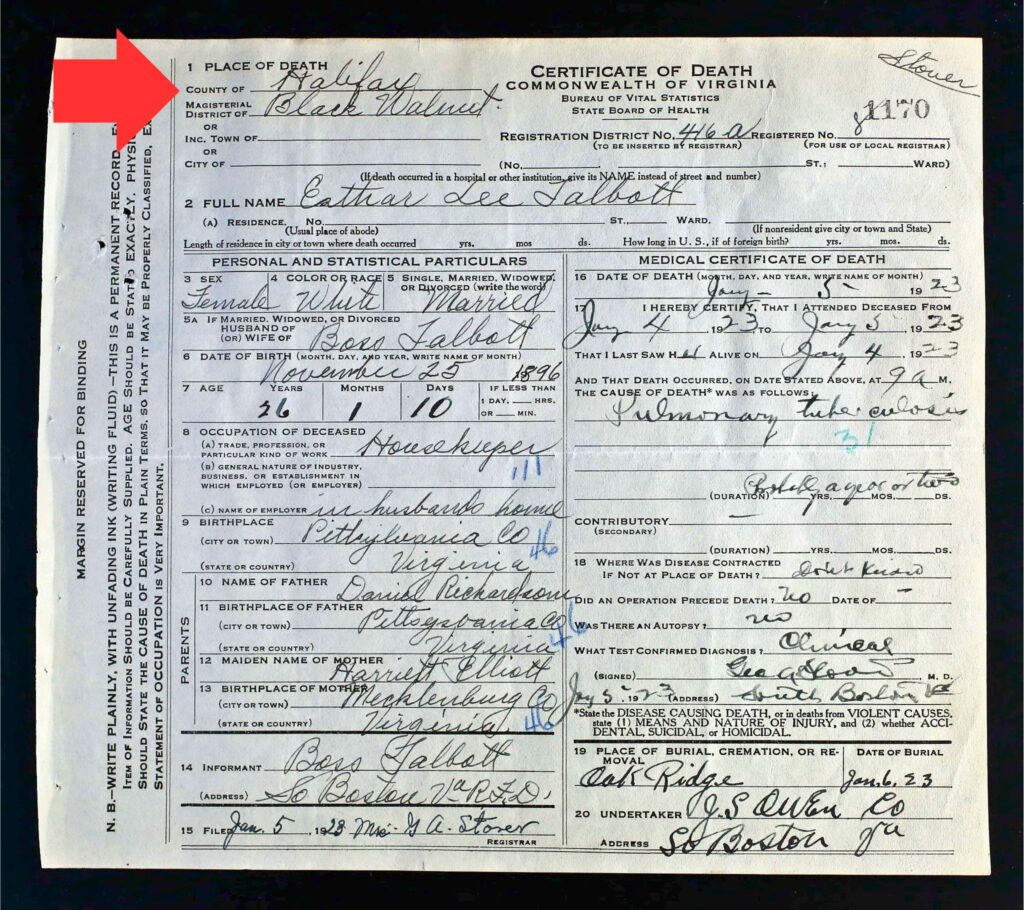 Stover
1 PLACE OF DEATH
COUNTY OF Halifax
MAGISTERIAL
DISTRICT OF Black Walnut
OR
INC. TOWN OF
OR
CITY OF
CERTIFICATE OF DEATH
COMMONWEALTH OF VIRGINIA
BUREAU OF VITAL STATISTICS
STATE BOARD OF HEALTH
1170
REGISTRATION DISTRICT NO. 416 a REGISTERED NO. 8
(TO BE INSERTED BY REGISTRAR) (FOR USE OF LOCAL REGISTRAR)
(NO. ST.; WARD)
(If death occurred in a hospital or other institution, give its NAME instead of street and number)
2 FULL NAME Eathar Lee Talbott
(A) RESIDENCE, NO. ST., WARD.
(Usual place of abode) (If nonresident give city or town and State)
Length of residence in city or town where death occurred yrs. mos ds. How long in U. S., if of foreign birth? yrs. mos. ds.
PERSONAL AND STATISTICAL PARTICULARS
3 SEX 4 COLOR OR RACE 5 SINGLE, MARRIED, WIDOWED,
OR DIVORCED (write the word)
Female White Married
5A IF MARRIED, WIDOWED, OR DIVORCED
HUSBAND OF
(OR) WIFE OF Boss Talbott
6 DATE OF BIRTH (MONTH, DAY, AND YEAR, WRITE NAME OF MONTH)
November 25 1896
7 AGE YEARS MONTHS DAYS IF LESS THAN
1 DAY, HRS.
OR MIN.
26 1 10
8 OCCUPATION OF DECEASED
(A) TRADE, PROFESSION, OR
PARTICULAR KIND OF WORK Housekeeper
(B) GENERAL NATURE OF INDUSTRY,
BUSINESS, OR ESTABLISHMENT IN
WHICH EMPLOYED (OR EMPLOYER)
111
(C) NAME OF EMPLOYER in husbands home
9 BIRTHPLACE
(CITY OR TOWN) Pittsylvania Co
46
(STATE OR COUNTRY) Virginia
PARENTS
10 NAME OF FATHER
Daniel Richardson
11 BIRTHPLACE OF FATHER
(CITY OR TOWN) Pittsysvania Co
46
(STATE OR COUNTRY) Virginia
12 MAIDEN NAME OF MOTHER
Harriett Elliott
13 BIRTHPLACE OF MOTHER
(CITY OR TOWN) Mecklenburg Co
(STATE OR COUNTRY) Virginia. 46
14 INFORMANT Boss Talbott
(ADDRESS) So Boston Va R.F.D.
15 FILED Jan. 5, 1923 Mrs. G A. Stover
REGISTRAR
MEDICAL CERTIFICATE OF DEATH
16 DATE OF DEATH (MONTH, DAY, AND YEAR, WRITE NAME OF MONTH)
Jany - 5 - 1923
17 I HEREBY CERTIFY, THAT I ATTENDED DECEASED FROM
Jany 4, 1923 TO Jany 5, 1923
THAT I LAST SAW HER ALIVE ON Jany 4, 1923
AND THAT DEATH OCCURRED, ON DATE STATED ABOVE, AT 9 a M.
THE CAUSE OF DEATH* WAS AS FOLLOWS:
Pulmonary tuberculosis
31
a year or two
(DURATION) YRS. MOS. DS.
CONTRIBUTORY
(SECONDARY)
(DURATION) YRS. MOS. DS.
18 WHERE WAS DISEASE CONTRACTED
IF NOT AT PLACE OF DEATH? Dont Know
DID AN OPERATION PRECEDE DEATH? no DATE OF -
WAS THERE AN AUTOPSY? no
WHAT TEST CONFIRMED DIAGNOSIS? Clinical
(SIGNED) Geo A Stover M. D.
Jany 5, 1923 (ADDRESS) South Boston Va
*State the DISEASE CAUSING DEATH, or in deaths from VIOLENT CAUSES,
state (1) MEANS AND NATURE OF INJURY, and (2) whether ACCI-
DENTAL, SUICIDAL, or HOMICIDAL.
19 PLACE OF BURIAL, CREMATION, OR RE-
MOVAL
DATE OF BURIAL
Oak Ridge Jan. 6. 23
20 UNDERTAKER J.S OWEN Co
ADDRESS So BOSTON Va
MARGIN RESERVED FOR BINDING
N. B.—WRITE PLAINLY, WITH UNFADING INK (WRITING FLUID)—THIS IS A PERMANENT RECORD
ITEM OF INFORMATION SHOULD BE CAREFULLY SUPPLIED. AGE SHOULD BE STATED EXACTLY. PHYSI
SHOULD STATE THE CAUSE OF DEATH IN PLAIN TERMS, SO THAT IT MAY BE PROPERLY CLASSIFIED. EX
STATEMENT OF OCCUPATION IS VERY IMPORTANT.